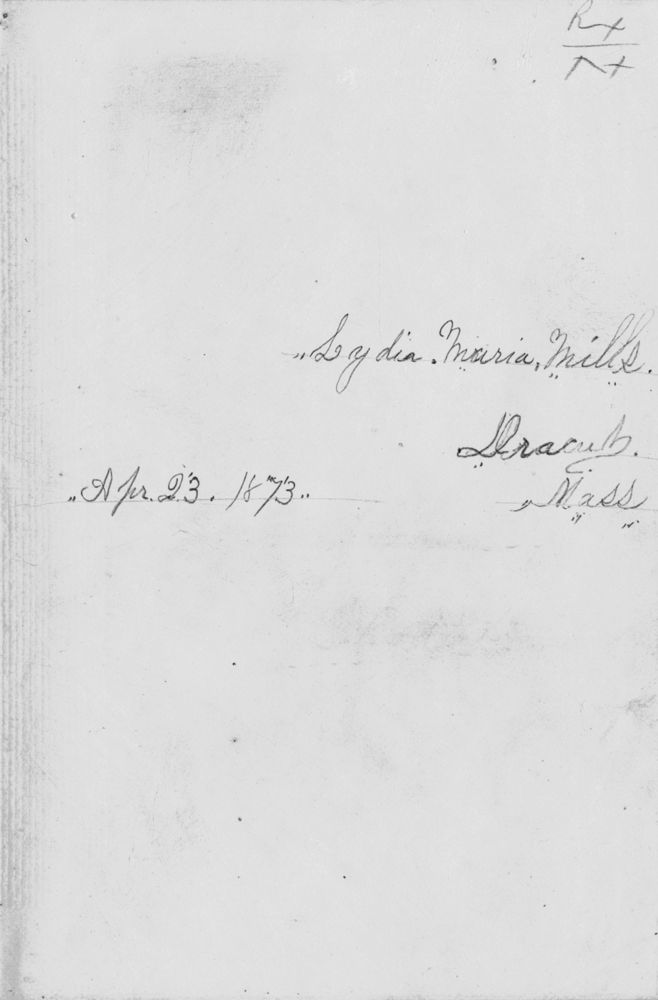 Lydia. Maria. Mills.
Dracut.
„Apr. 23. 1873„
„Mass